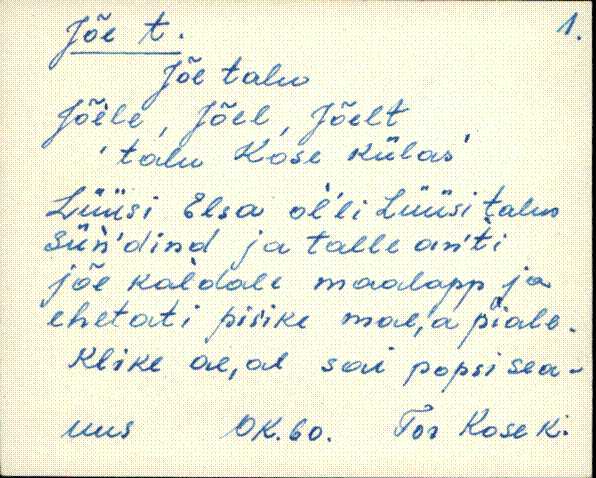 Jõe t. 1.
Jõe talu
Jõele, Jõel, Jõelt
'talu Kose külas'
Lüüsi Elsa ol'li Lüüsi talun
sün'dind ja talle an'ti
jõe kaldale maalapp ja
ehetati pisike mae,a piale.
Klike ae,al sai popsi sea-
uus OK. 60. Tor Kose k.